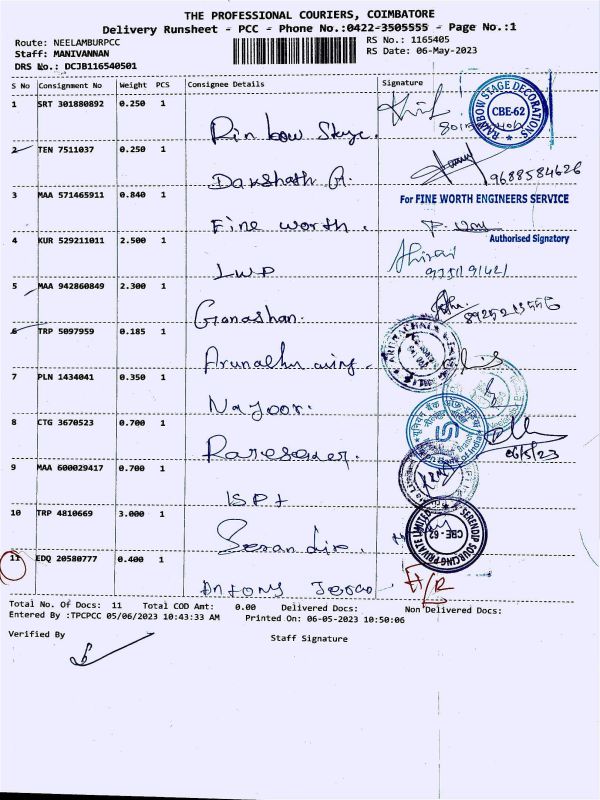 THE PROFESSIONAL COURIERS, COIMBATORE
Delivery Runsheet - PCC - Phone No.:0422-3505555 - Page No.:1
Route: NEELAMBURPCC
RS No.: 1165405
Staff: MANIVANNAN
RS Date: 06-May-2023
DRS No.: DCJB116540501
S No Consignment No Weight PCS Consignee Details Signature
1 SRT 301880892 0.250 1
RAINBOW STAGE DECORATIONS
CBE-62
2 TEN 7511037 0.250 1
Dakshath
9688584626
3 MAA 571465911 0.840 1
For FINE WORTH ENGINEERS SERVICE
Fine worth.
Authorised Signatory
4 KUR 529211011 2.500 1
LWP
5 MAA 942860849 2.300 1
Ganashan.
6 TRP 5097959 0.185 1
7 PLN 1434041 0.350 1
Nagoor.
8 CTG 3670523 0.700 1
06/5/23
9 MAA 600029417 0.700 1
10 TRP 4810669 3.000 1
SERENDIP SOURCING PRIVATE LIMITED
CBE - 62
11 EDQ 20580777 0.400 1
Antony
Total No. Of Docs: 11 Total COD Amt: 0.00 Delivered Docs: Non Delivered Docs:
Entered By :TPCPCC 05/06/2023 10:43:33 AM Printed On: 06-05-2023 10:50:06
Verified By
Staff Signature